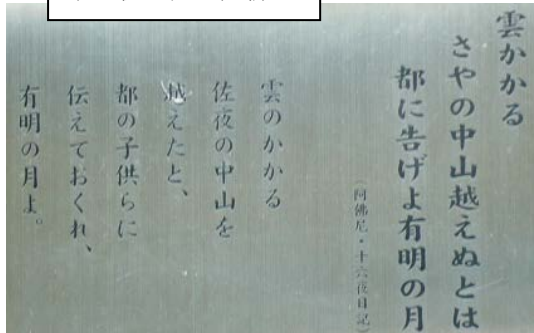 雲かかる
さやの中山越えぬとは
都に告げよ有明の月
(阿佛尼・十六夜日記)
雲のかかる
佐夜の中山を
越えたと、
都の子供らに
伝えておくれ、
有明の月よ。